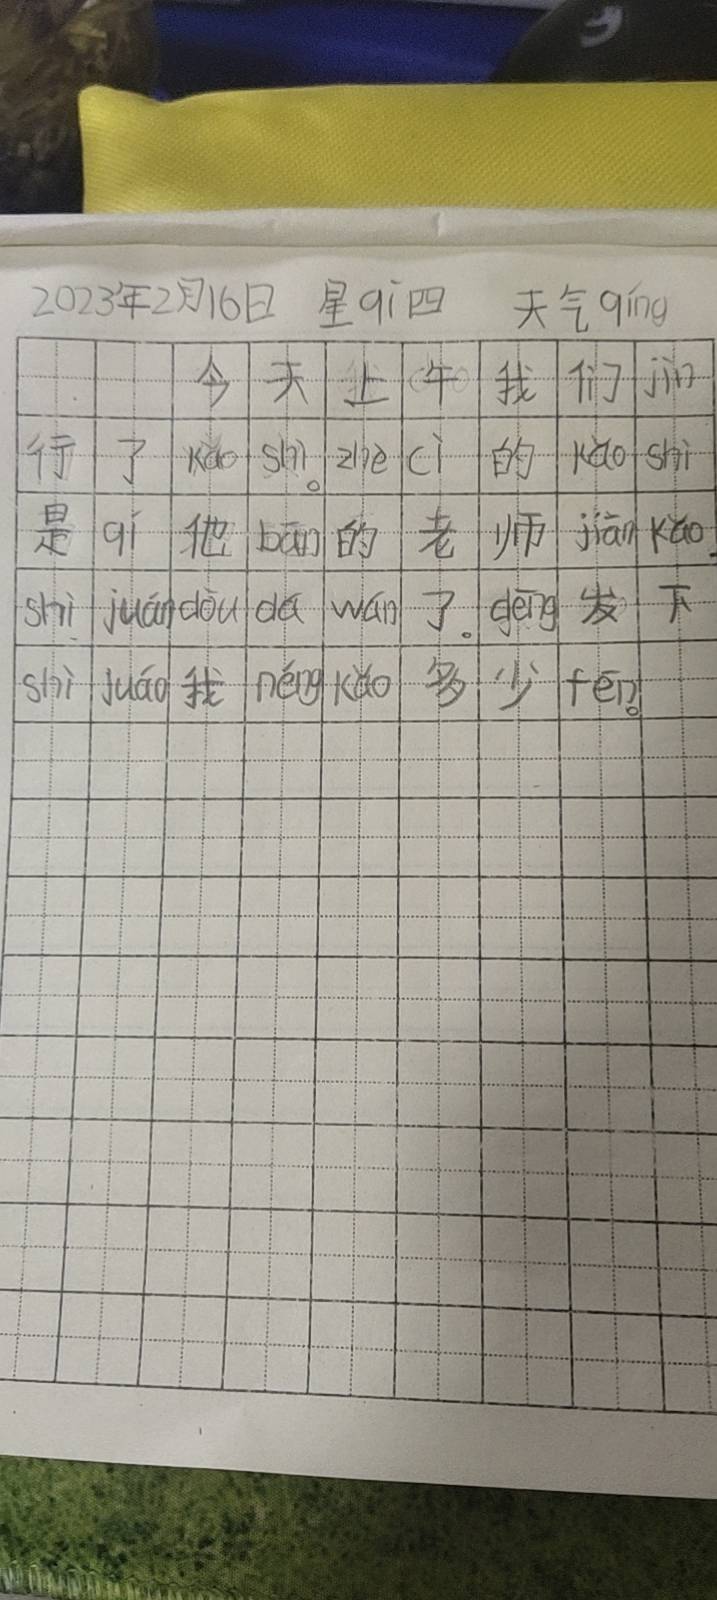 2023年2月16日 星qī四 天气qíng
今天上午我们jìn
行了kǎo shì。zhè cì的kǎo shì
是qí他bān的老师jiān kǎo,
shì juán dōu dá wán了。děng发下
shì juáo我néng kǎo多少fēn。